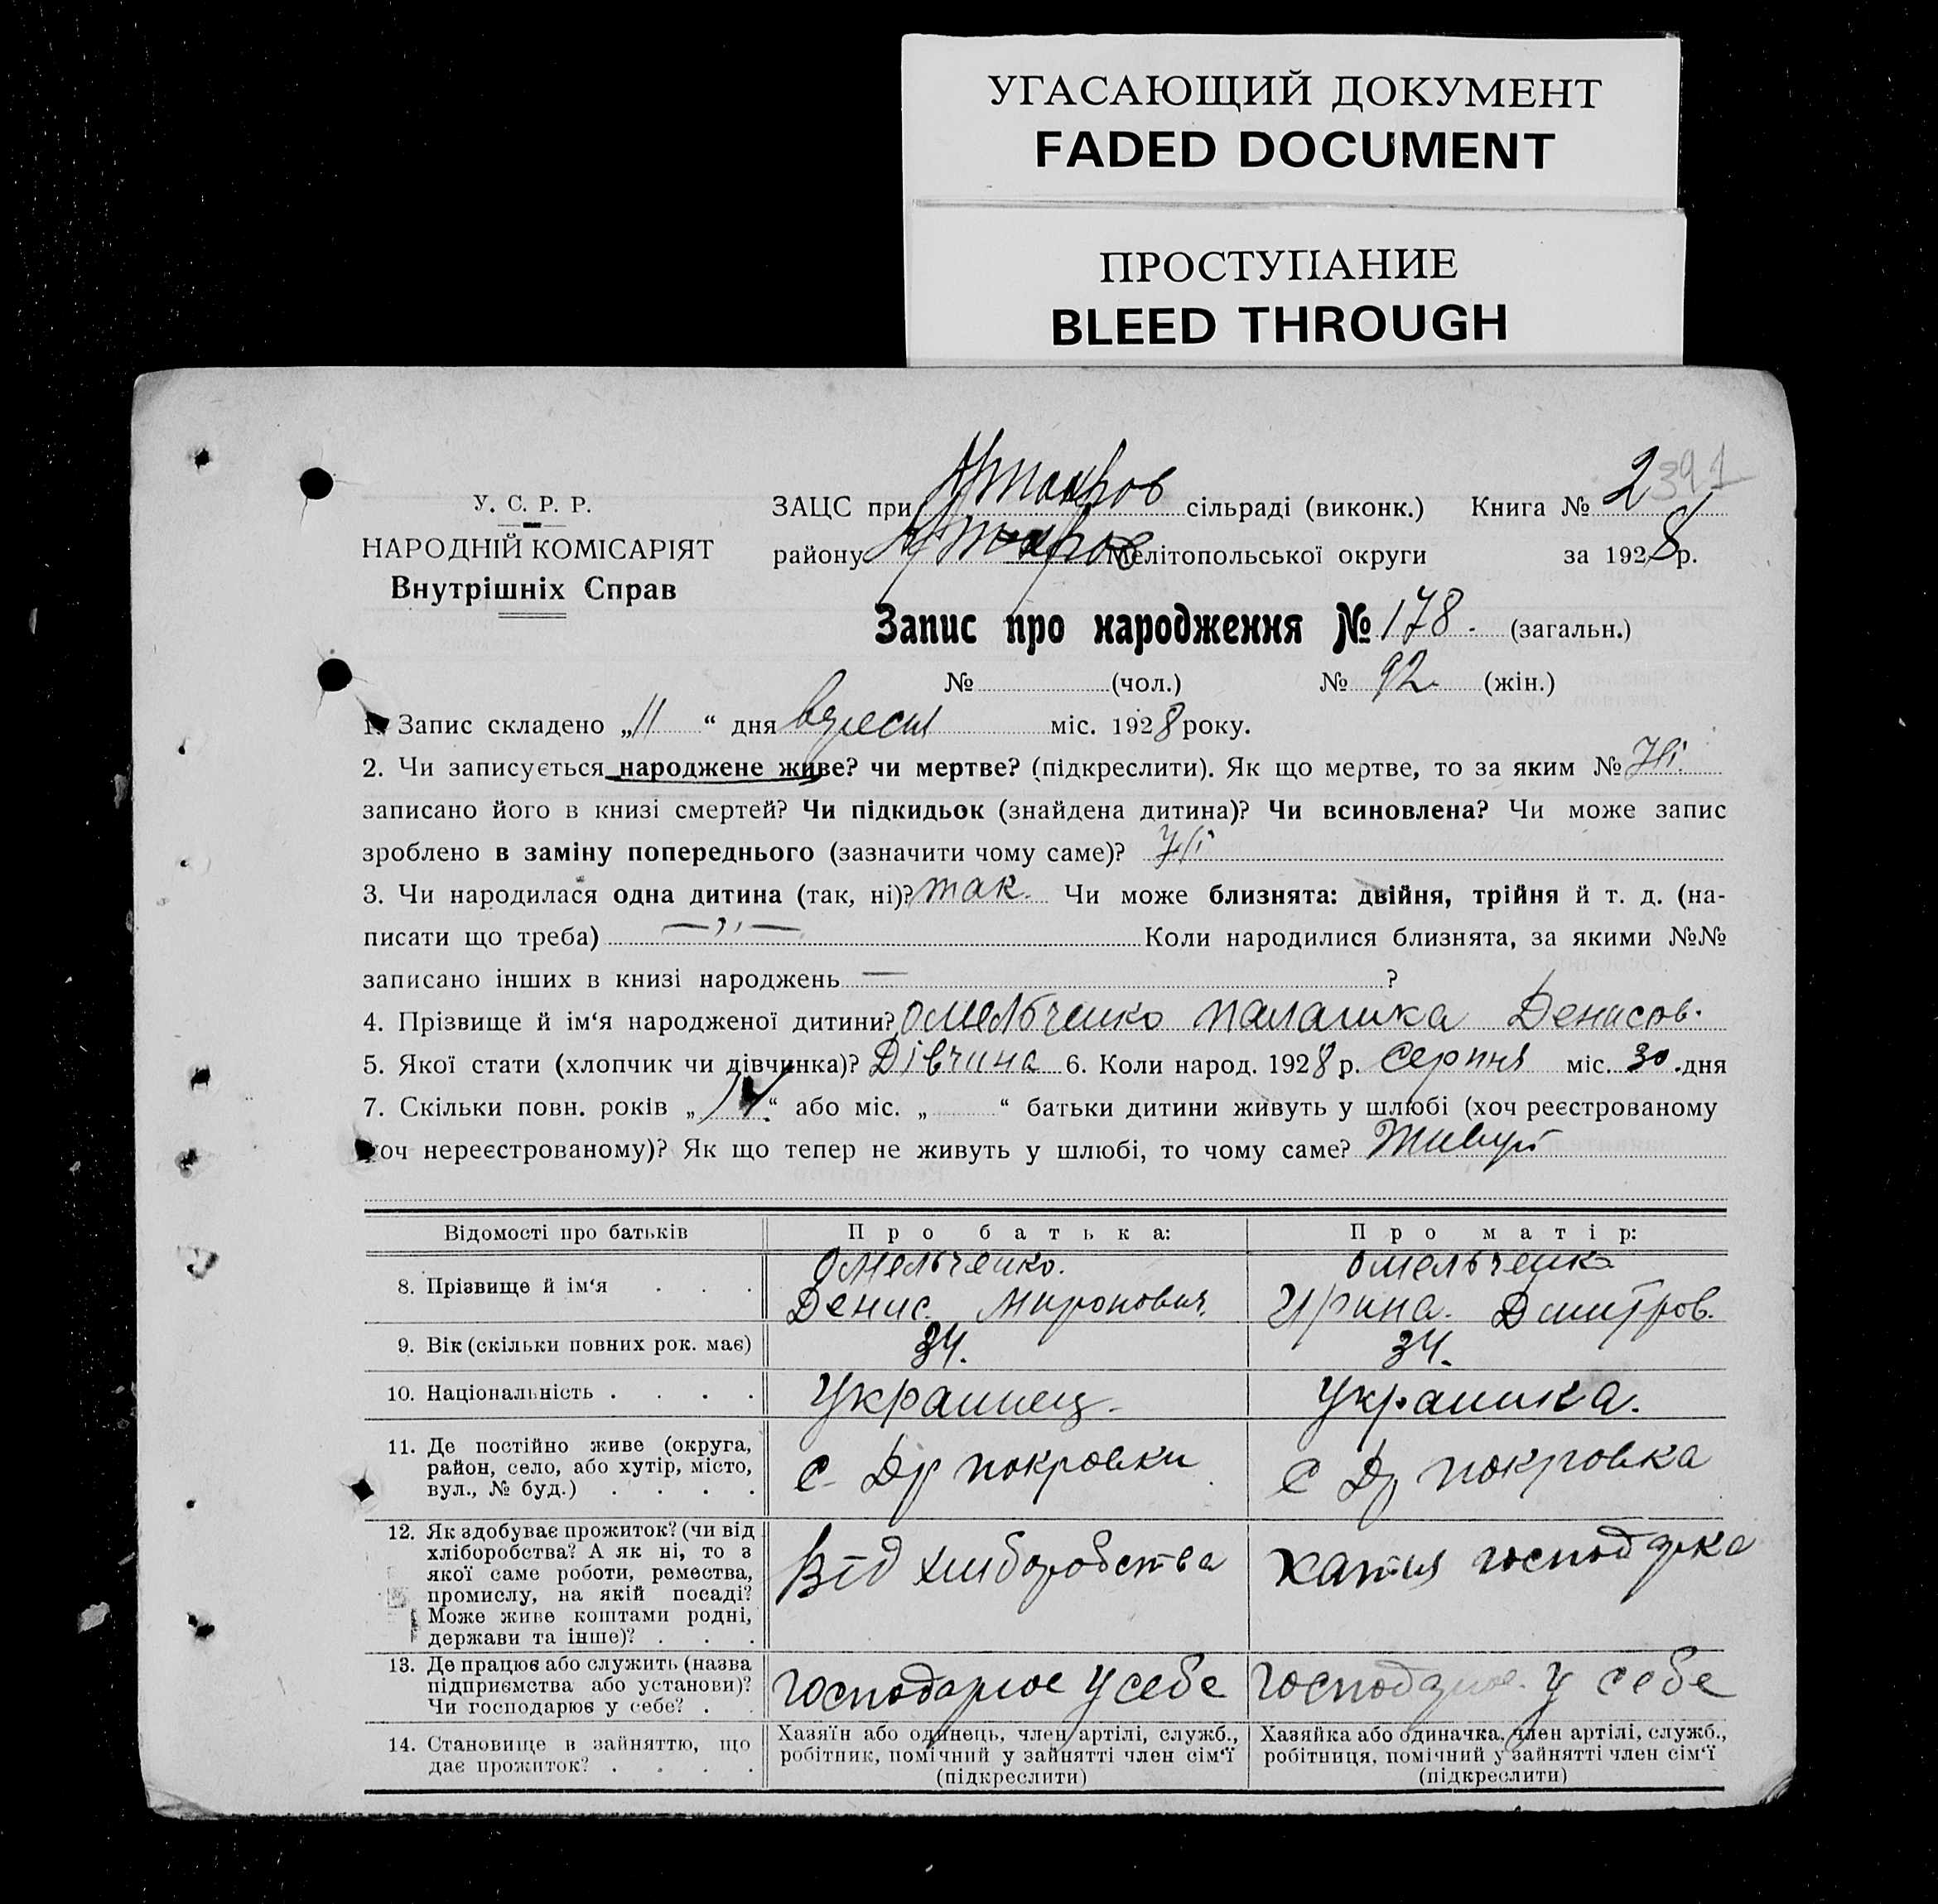 УГАСАЮЩИЙ ДОКУМЕНТ
FADED DOCUMENT
ПРОСТУПАНИЕ
BLEED THROUGH
391
У. С. Р. Р.
НАРОДНІЙ КОМІСАРІЯТ
Внутрішніх Справ
ЗАЦС при сільраді (виконк.) Книга № 2
району Мелітопольської округи за 1928 р.
Запис про народження № 178. (загальн.)
№ (чол.) № 92 (жін.)
1. Запис складено „11“ дня вересня міс. 1928 року.
2. Чи записується народжене живе? чи мертве? (підкреслити). Як що мертве, то за яким № Ні
записано його в книзі смертей? Чи підкидьок (знайдена дитина)? Чи всиновлена? Чи може запис
зроблено в заміну попереднього (зазначити чому саме)? Ні
3. Чи народилася одна дитина (так, ні)? так Чи може близнята: двійня, трійня й т. д. (на-
писати що треба) —„— Коли народилися близнята, за якими №№
записано інших в книзі народжень — ?
4. Прізвище й ім‘я народженої дитини? Омельченко Палашка Денисов.
5. Якої стати (хлопчик чи дівчинка)? Дівчина 6. Коли народ. 1928 р. Серпня міс. 30 дня
7. Скільки повн. років „ “ або міс. „ “ батьки дитини живуть у шлюбі (хоч реєстрованому
хоч нереєстрованому)? Як що тепер не живуть у шлюбі, то чому саме? Живуть
Відомості про батьків Про батька: Про матір:
8. Прізвище й ім‘я . . . Омельченко. Денис. Миронович. Омельченко Ирина. Дмитров.
9. Вік (скільки повних рок. має) 34. 34.
10. Національність . . . . Украинец. Украинка.
11. Де постійно живе (округа,
район, село, або хутір, місто,
вул., № буд.) . . . . С. Др покровки С Др покровка
12. Як здобуває прожиток? (чи від
хліборобства? А як ні, то з
якої саме роботи, ремества,
промислу, на якій посаді?
Може живе коштами родні,
держави та інше)? . . . Від хліборобства Хатня господарка
13. Де працює або служить (назва
підприємства або установи)?
Чи господарює у себе? . . господарює у себе господарює у себе
14. Становище в зайняттю, що
дає прожиток? . . . .
Хазяїн або одинець, член артілі, служб.,
робітник, помічний у зайнятті член сім‘ї
(підкреслити)
Хазяйка або одиначка, член артілі, служб.,
робітниця, помічний у зайнятті член сім‘ї
(підкреслити)